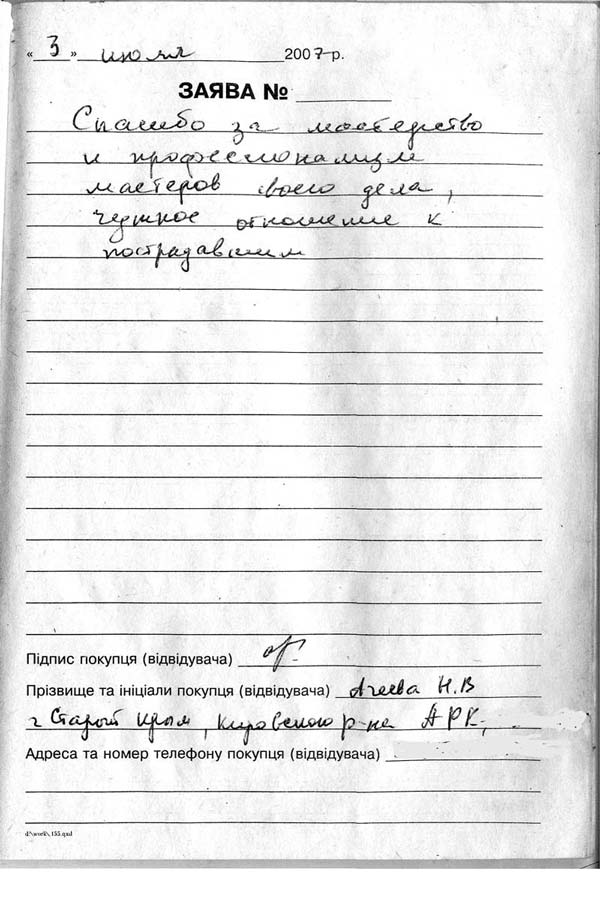 « 3 » июля 2007 р.
ЗАЯВА №
Спасибо за мастерство
и профессионализм
мастеров своего дела,
чуткое отношение к
пострадавшим
Підпис покупця (відвідувача)
Прізвище та ініціали покупця (відвідувача) Агеева Н.В
г Старый Крым, Кировского р-на АРК,
Адреса та номер телефону покупця (відвідувача)